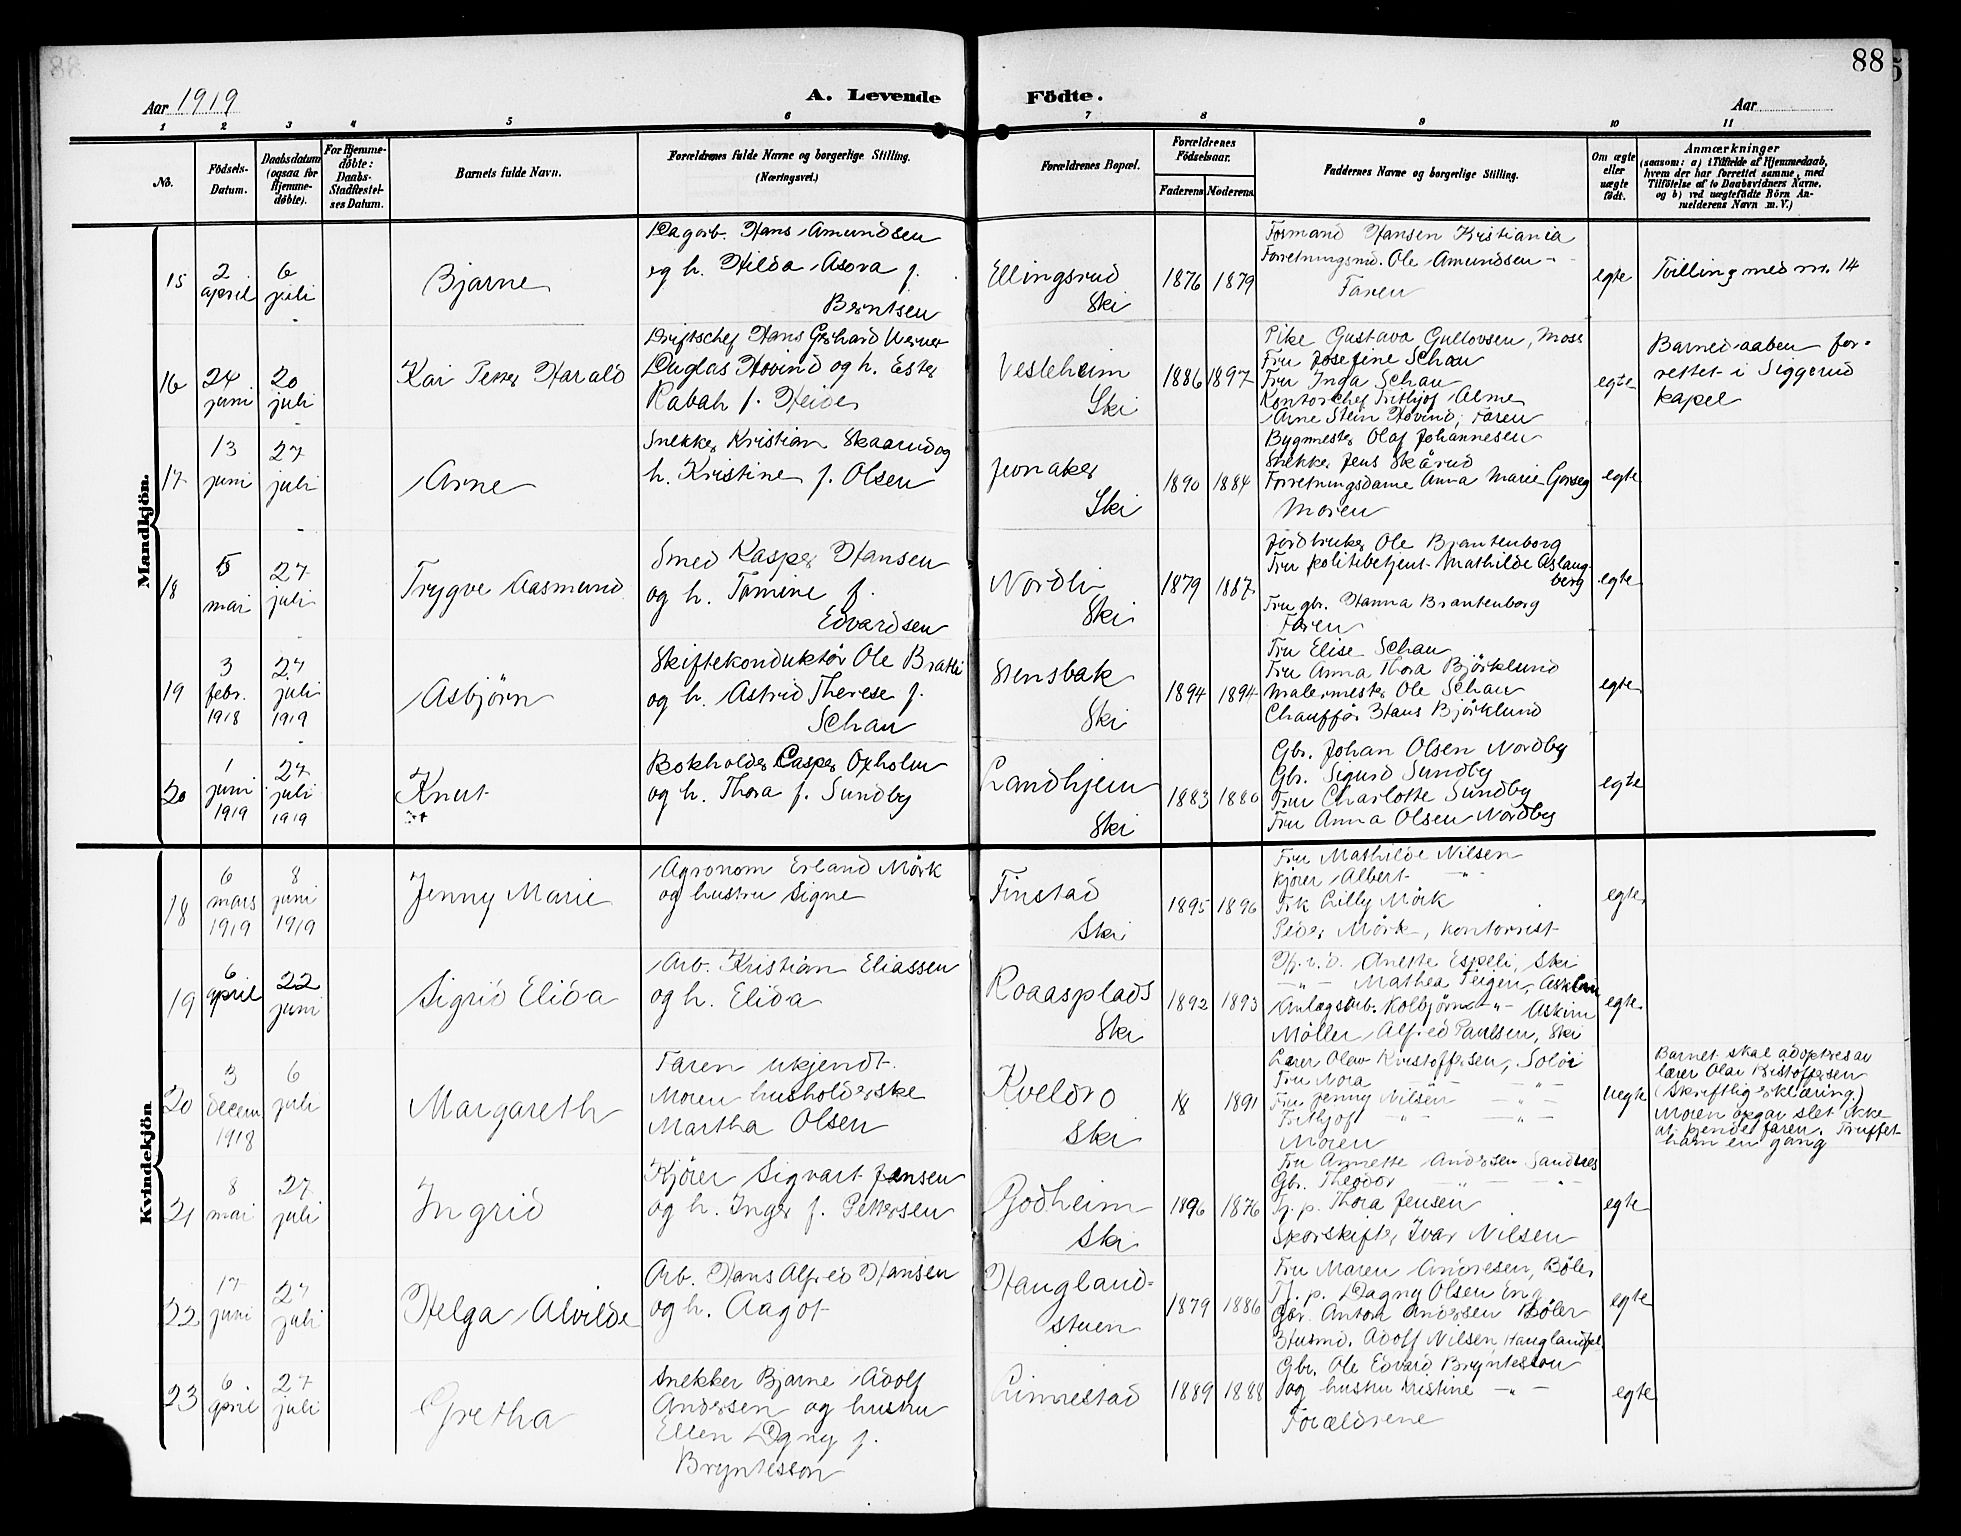 88
Aar 1919
A. Levende Födte.
Aar
1 2 3 4 5 6 7 8 9 10 11
No.
Födsels-Datum.
Daabsdatum (ogsaa for Hjemme-döbte).
For Hjemme-döbte: Daabs-Stadfestel-ses Datum.
Barnets fulde Navn.
Forældrenes fulde Navne og borgerlige Stilling. (Næringsvei.)
Forældrenes Bopæl.
Forældrenes Födselsaar.
Faderens. Moderens.
Faddernes Navne og borgerlige Stilling.
Om ægte eller uægte født.
Anmærkninger
(saasom: a) i Tilfælde af Hjemmedaab,
hvem der har forrettet samme, med
Tilföielse af to Daabsvidners Navne,
og b) ved uægtefödte Börn An-
melderens Navn m. V.)
Mandkjön.
15
2 april
6 juli
Bjarne
Dagarb. Hans Amundsen
og h. Hilda Asora f.
Berntsen
Ellingsrud
Ski
1876 1879
Formand Hansen Kristiania
Forretningsmd. Ole Amundsen - -
Faren
egte
Tvilling med nr. 14
16
24 juni
20 juli
Kai Peter Harald
Driftschef Hans Gerhard Werner
Duglas Hovind og h. Ester
Rabah f. Heide
Vesleheim
Ski
1886 1897
Pike Gustava Gullovsen, Moss
Fru Josefine Schau
Fru Inga Schau
Kontorchef Frithjof Alme
Arne Stein Hovind, Faren
egte
Barnedaaben for-
rettet i Siggerud
kapel
17
13 juni
27 juli
Arne
Snekker Kristian Skaarud og
h. Kristine f. Olsen
Jonaker
Ski
1890 1884
Bygmester Olaf Johannesen
Snekker Jens Skårud
Forretningsdame Anna Marie
Moren
egte
18
5 mai
27 juli
Trygve Aasmund
Smed Kasper Hansen
og h. Tomine f.
Edvardsen
Nordli
Ski
1879 1887
Jordbruker Ole Brantenborg
Fru politibetjent Mathilde Aslang-
berg
Fru gbr. Hanna Brantenborg
Faren
egte
19
3 febr. 1918
27 juli 1919
Asbjörn
Skiftekonduktör Ole Bratli
og h. Astrid Therese f.
Schau
Stensbak
Ski
1894 1894
Fru Elise Schau
Fru Anna Thora Björklund
Malermester Ole Schau
Chauffør Hans Björklund
egte
20
1 juni 1919
27 juli 1919
Knut
Bokholder Casper Oxholm
og h. Thora f. Sundby
Landhjem
Ski
1883 1880
Gbr. Johan Olsen Nordby
Gbr. Sigurd Sundby
Fru Charlotte Sundby
Fru Anna Olsen Nordby
egte
Kvindekjön
18
6 mars 1919
8 juni 1919
Jenny Marie
Agronom Erland Mörk
og hustru Signe
Finstad
Ski
1895 1896
Fru Mathilde Nilsen
kjörer Albert - " -
Frk Lilly Mörk
Peder Mörk, kontorist
egte
19
6 april
22 juni
Sigrid Elida
Arb. Kristian Eliassen
og h. Elida
Roaasplads
Ski
1892 1893
Anette Espeli, Ski
- " - Mathea Teigen, Askim
Anlægsarb. Kolbjörn - " - Askim
Möller Alfred Paulsen, Ski
egte
20
3 decem 1918
6 juli
Margareth
Faren ukjendt
Moren husholderske
Martha Olsen
Kveldro
Ski
18 1891
Lærer Olav Kristoffersen, Solör
Fru Nora - " - - " -
Fru Jenny Nilsen - " -
Frithjof " - " -
Moren
uegte
Barnet skal adopteres av
lærer Olav Kristoffersen
(Skriftlig erklæring.)
Moren opgav slet ikke
at kjende faren. Truffet
ham en gang
21
8 mai
27 juli
Ingrid
Kjörer Sigvart Jensen
og h. Inger f. Pettersen
Godheim
Ski
1896 1876
Fru Annette Andersen Sandnes
Gbr. Theodor - " - - " -
Tj. p. Thora Jensen
Sporskifter Ivar Nilsen
egte
22
17 juni
27 juli
Helga Alvilde
Arb. Hans Alfred Hansen
og h. Aagot
Haugland-
stuen
1879 1886
Fru Maren Andresen, Böler
Tj. p. Dagny Olsen Eng
Gbr. Anton Andersen Böler
Husmd. Adolf Nilsen, Hauglandpl.
egte
23
6 april
27 juli
Gretha
Snekker Bjarne Adolf
Andersen og hustru
Ellen Dgny f.
Bryntesson
Linnestad
1889 1888
Gbr. Ole Edvard Bryntesson
og hustru Kristine - " -
Forældrene
egte